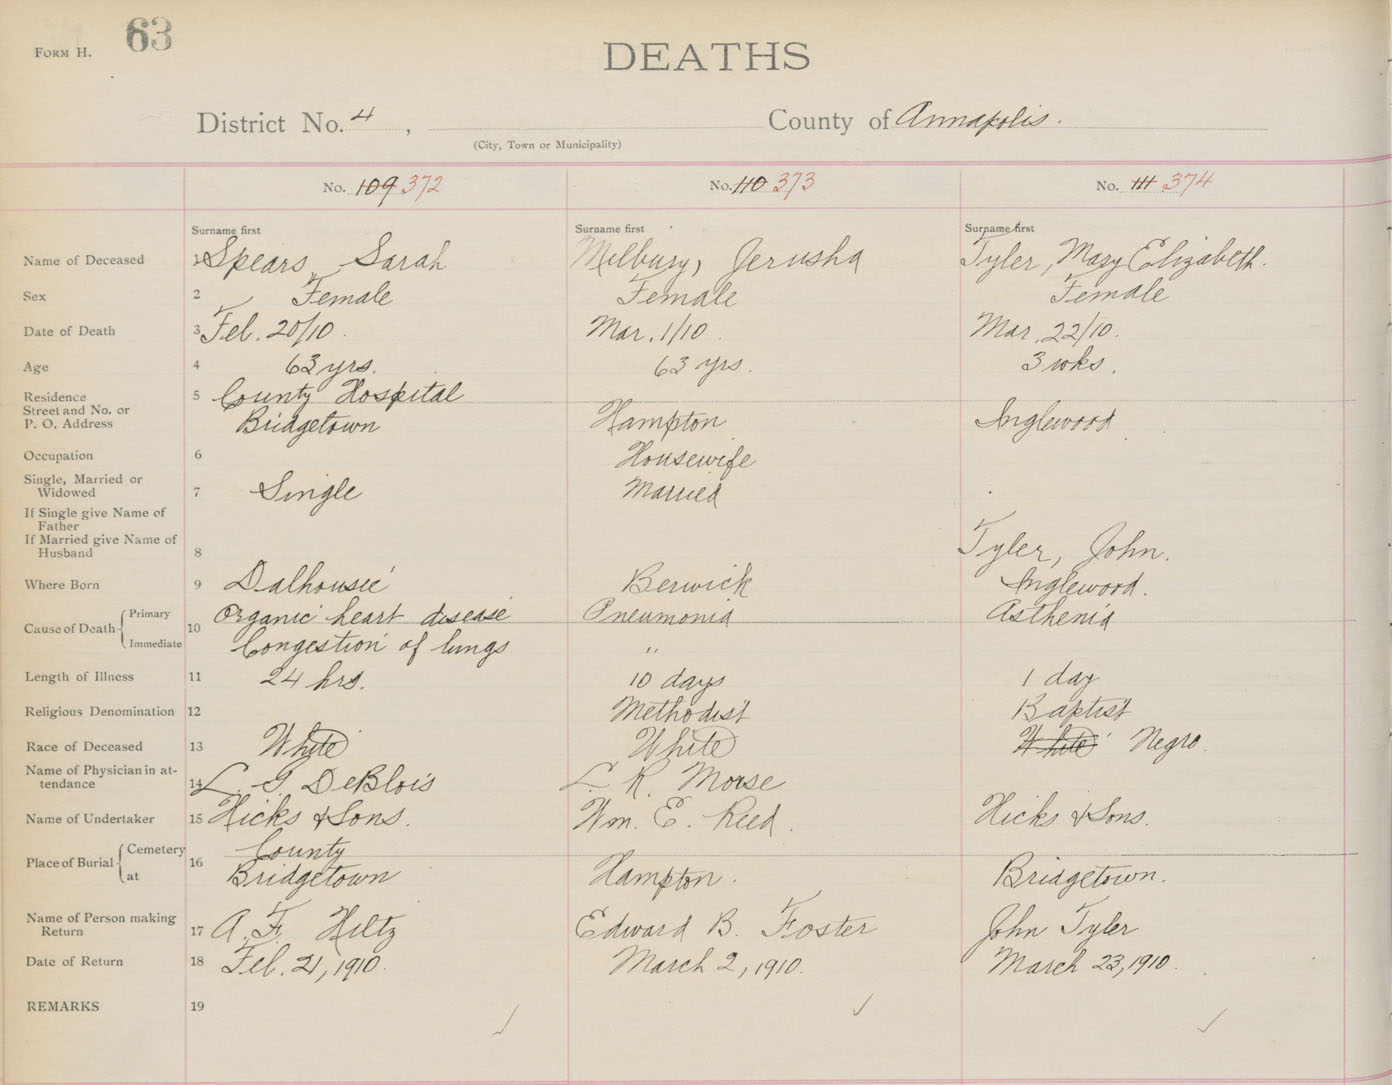 FORM H.
63
DEATHS
District No. 4 , County of Annapolis.
(City, Town or Municipality)
No. 109 372 No. 110 373 No. 111 374
Surname first Surname first Surname first
Name of Deceased 1 Spears, Sarah Milbury, Jerusha Tyler, Mary Elizabeth.
Sex 2 Female Female Female
Date of Death 3 Feb. 20/10. Mar. 1/10. Mar. 22/10.
Age 4 63 yrs. 63 yrs. 3 wks.
Residence 5 County Hospital
Street and No. or
P. O. Address Bridgetown Hampton Inglewood
Occupation 6 Housewife
Single, Married or
Widowed 7 Single Married
If Single give Name of
Father
If Married give Name of
Husband 8 Tyler, John.
Where Born 9 Dalhousie Berwick Inglewood.
Cause of Death 10 Primary Organic heart disease Pneumonia Asthenia
Immediate Congestion of lungs "
Length of Illness 11 24 hrs. 10 days 1 day
Religious Denomination 12 Methodist Baptist
Race of Deceased 13 White White White Negro.
Name of Physician in at-
tendance 14 L. G. DeBlois L. R. Morse
Name of Undertaker 15 Hicks & Sons. Wm. E. Reed. Hicks & Sons.
Place of Burial 16 Cemetery County
at Bridgetown Hampton. Bridgetown.
Name of Person making
Return 17 A. F. Hiltz Edward B. Foster John Tyler
Date of Return 18 Feb. 21, 1910. March 2, 1910. March 23, 1910.
REMARKS 19